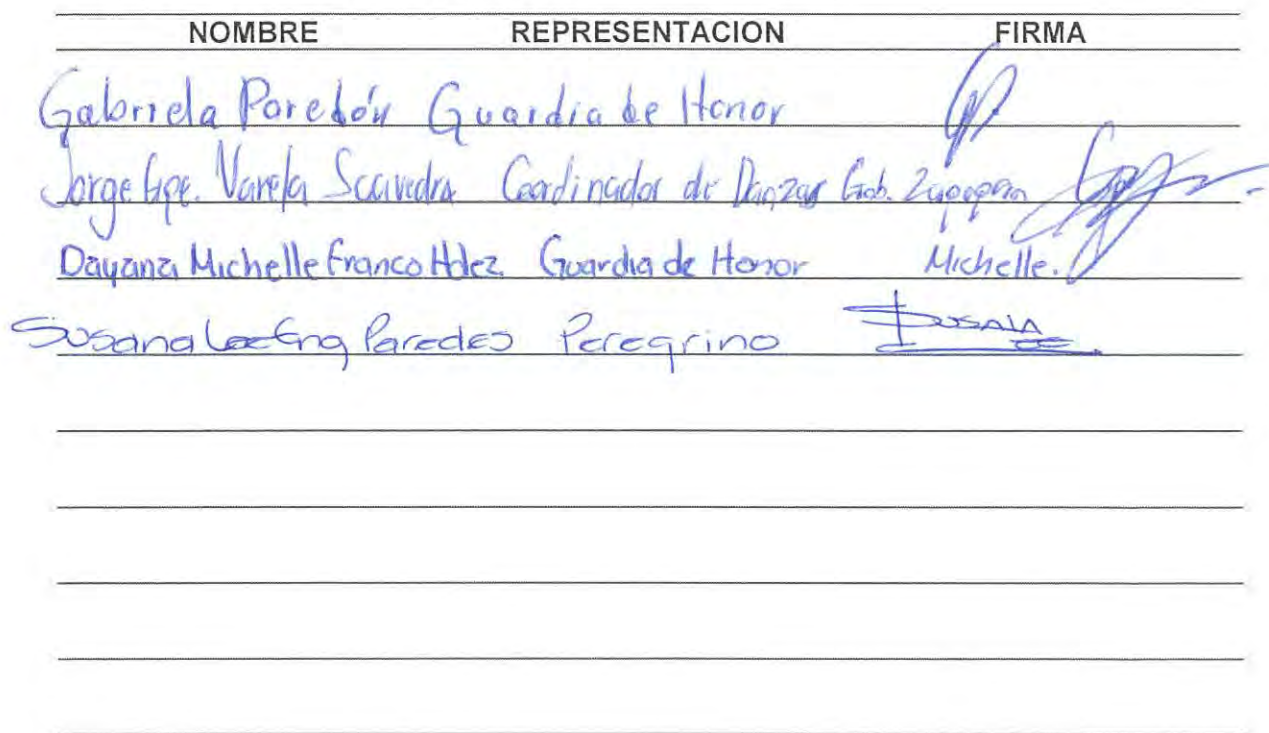 NOMBRE REPRESENTACION FIRMA
Gabriela Paredón Guardia de Honor
Jorge Gpe. Varela Saavedra Coordinador de Danzas Gob. Zapopan
Dayana Michelle Franco Hdez. Guardia de Honor Michelle.
Susana Lee Eng Paredes Peregrino Susana Lee